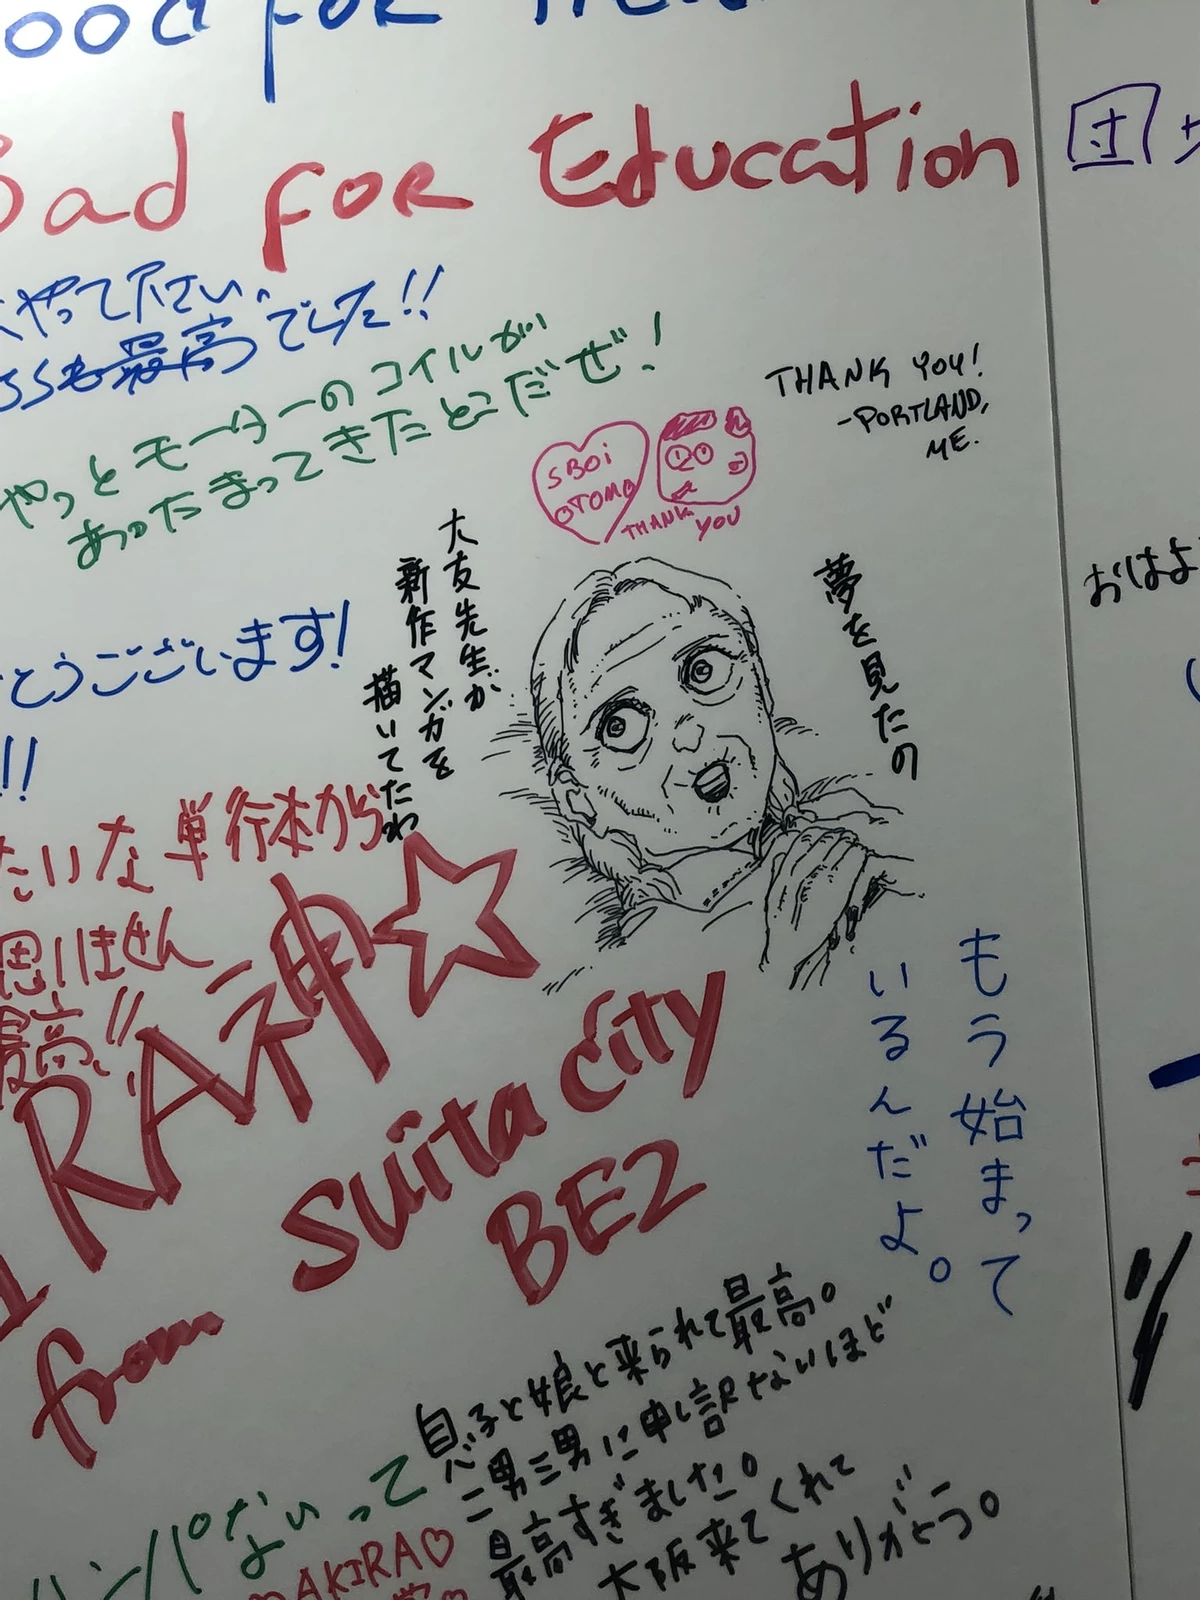 ood for
Bad for Education
やって下さい。
SSも最高でした!!
やっとモーターのコイルが
あったまってきたとこだぜ!
THANK YOU!
-PORTLAND,
ME.
SBOi
OTOMO
THANK
YOU
夢を見たの
大友先生が
新作マンガを
描いてたわ
とうございます!
!!
たいな単行本から
思いません
最高!!
RA神☆
from suita city
BE2
もう始まって
いるんだよ。
息子と娘と来られて最高。
二男三男に申し訳ないほど
最高すぎました。
大阪来てくれて
ありがとう。
ンパないって
AKIRA♡
おはよ